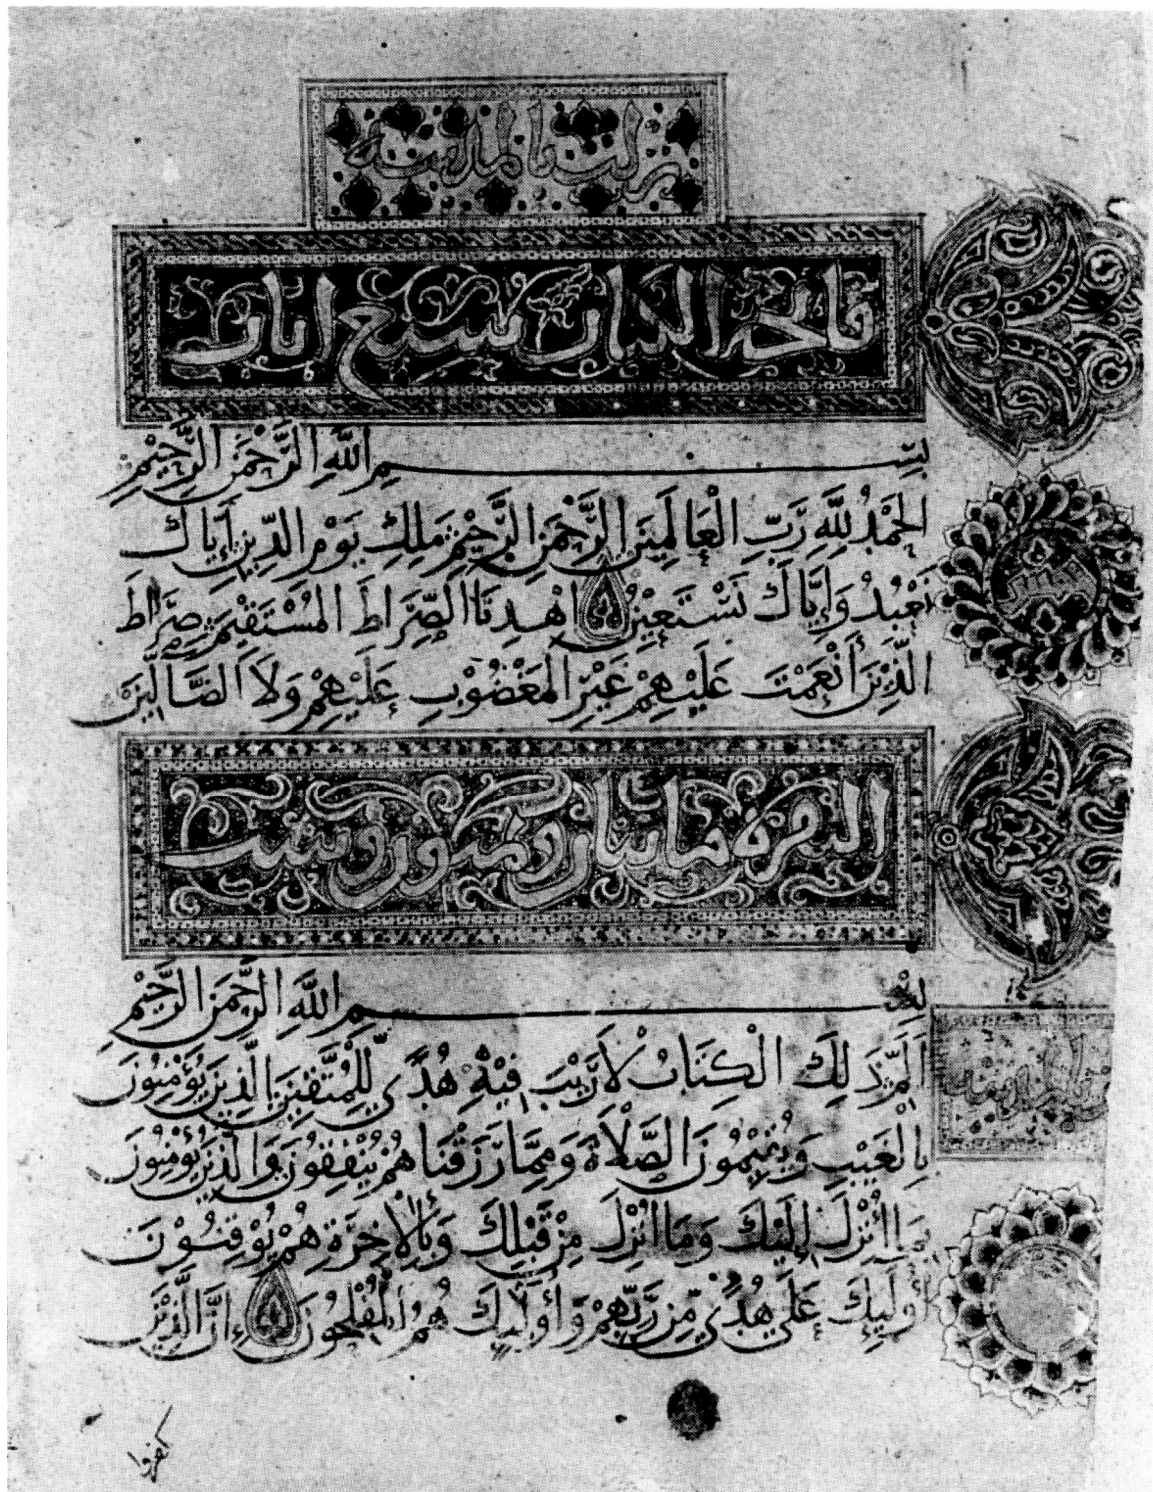 نزلت بالمدينة
فاتحة الكتاب سبع ايات
بِسْمِ اللَّهِ الرَّحْمَنِ الرَّحِيْمِ
الحَمْدُ لِلَّهِ رَبِّ الْعَالَمِيْنَ الرَّحْمَنِ الرَّحِيْمِ مَلِكِ يَوْمِ الدِّيْنِ إِيَّاكَ
نَعْبُدُ وَإِيَّاكَ نَسْتَعِيْنُ اهْدِنَا الصِّرَاطَ المُسْتَقِيْمَ صِرَاطَ
الَّذِيْنَ أَنْعَمْتَ عَلَيْهِمْ غَيْرِ المَغْضُوْبِ عَلَيْهِمْ وَلَا الضَّالِّيْنَ
البقرة مايتان وثمنون وست
بِسْمِ اللَّهِ الرَّحْمَنِ الرَّحِيْمِ
الٓمّٓ ذَلِكَ الْكِتَابُ لَا رَيْبَ فِيْهِ هُدًى لِّلْمُتَّقِيْنَ الَّذِيْنَ يُؤْمِنُوْنَ
بِالْغَيْبِ وَيُقِيْمُوْنَ الصَّلَاةَ وَمِمَّا رَزَقْنَاهُمْ يُنْفِقُوْنَ وَالَّذِيْنَ يُؤْمِنُوْنَ
بِمَا أُنْزِلَ إِلَيْكَ وَمَا أُنْزِلَ مِنْ قَبْلِكَ وَبِالْآخِرَةِ هُمْ يُوْقِنُوْنَ
أُولَئِكَ عَلَى هُدًى مِّنْ رَبِّهِمْ وَأُولَئِكَ هُمُ الْمُفْلِحُوْنَ إِنَّ الَّذِيْنَ
كفروا